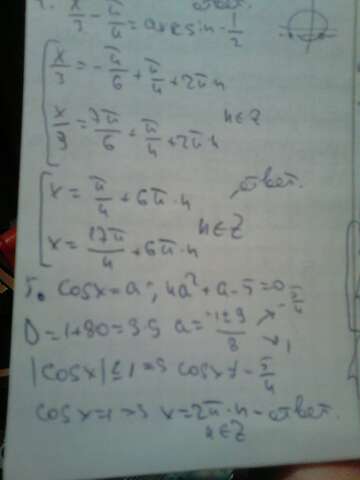 ответ.
x/3 - π/4 = arcsin - 1/2
x/3 = -π/6 + π/4 + 2πn
n∈Z
x/3 = 7π/6 + π/4 + 2πn
x = π/4 + 6π·n
ответ.
n∈Z
x = 17π/4 + 6π·n
5. cosx = a; 4a² + a - 5 = 0
D = 1 + 80 = 9² a = -1±9/8 ↗ -5/4 ↘ 1
|cosx| ≤ 1 => cosx ≠ - 5/4
cosx = 1 => x = 2π·n - ответ.
n∈Z